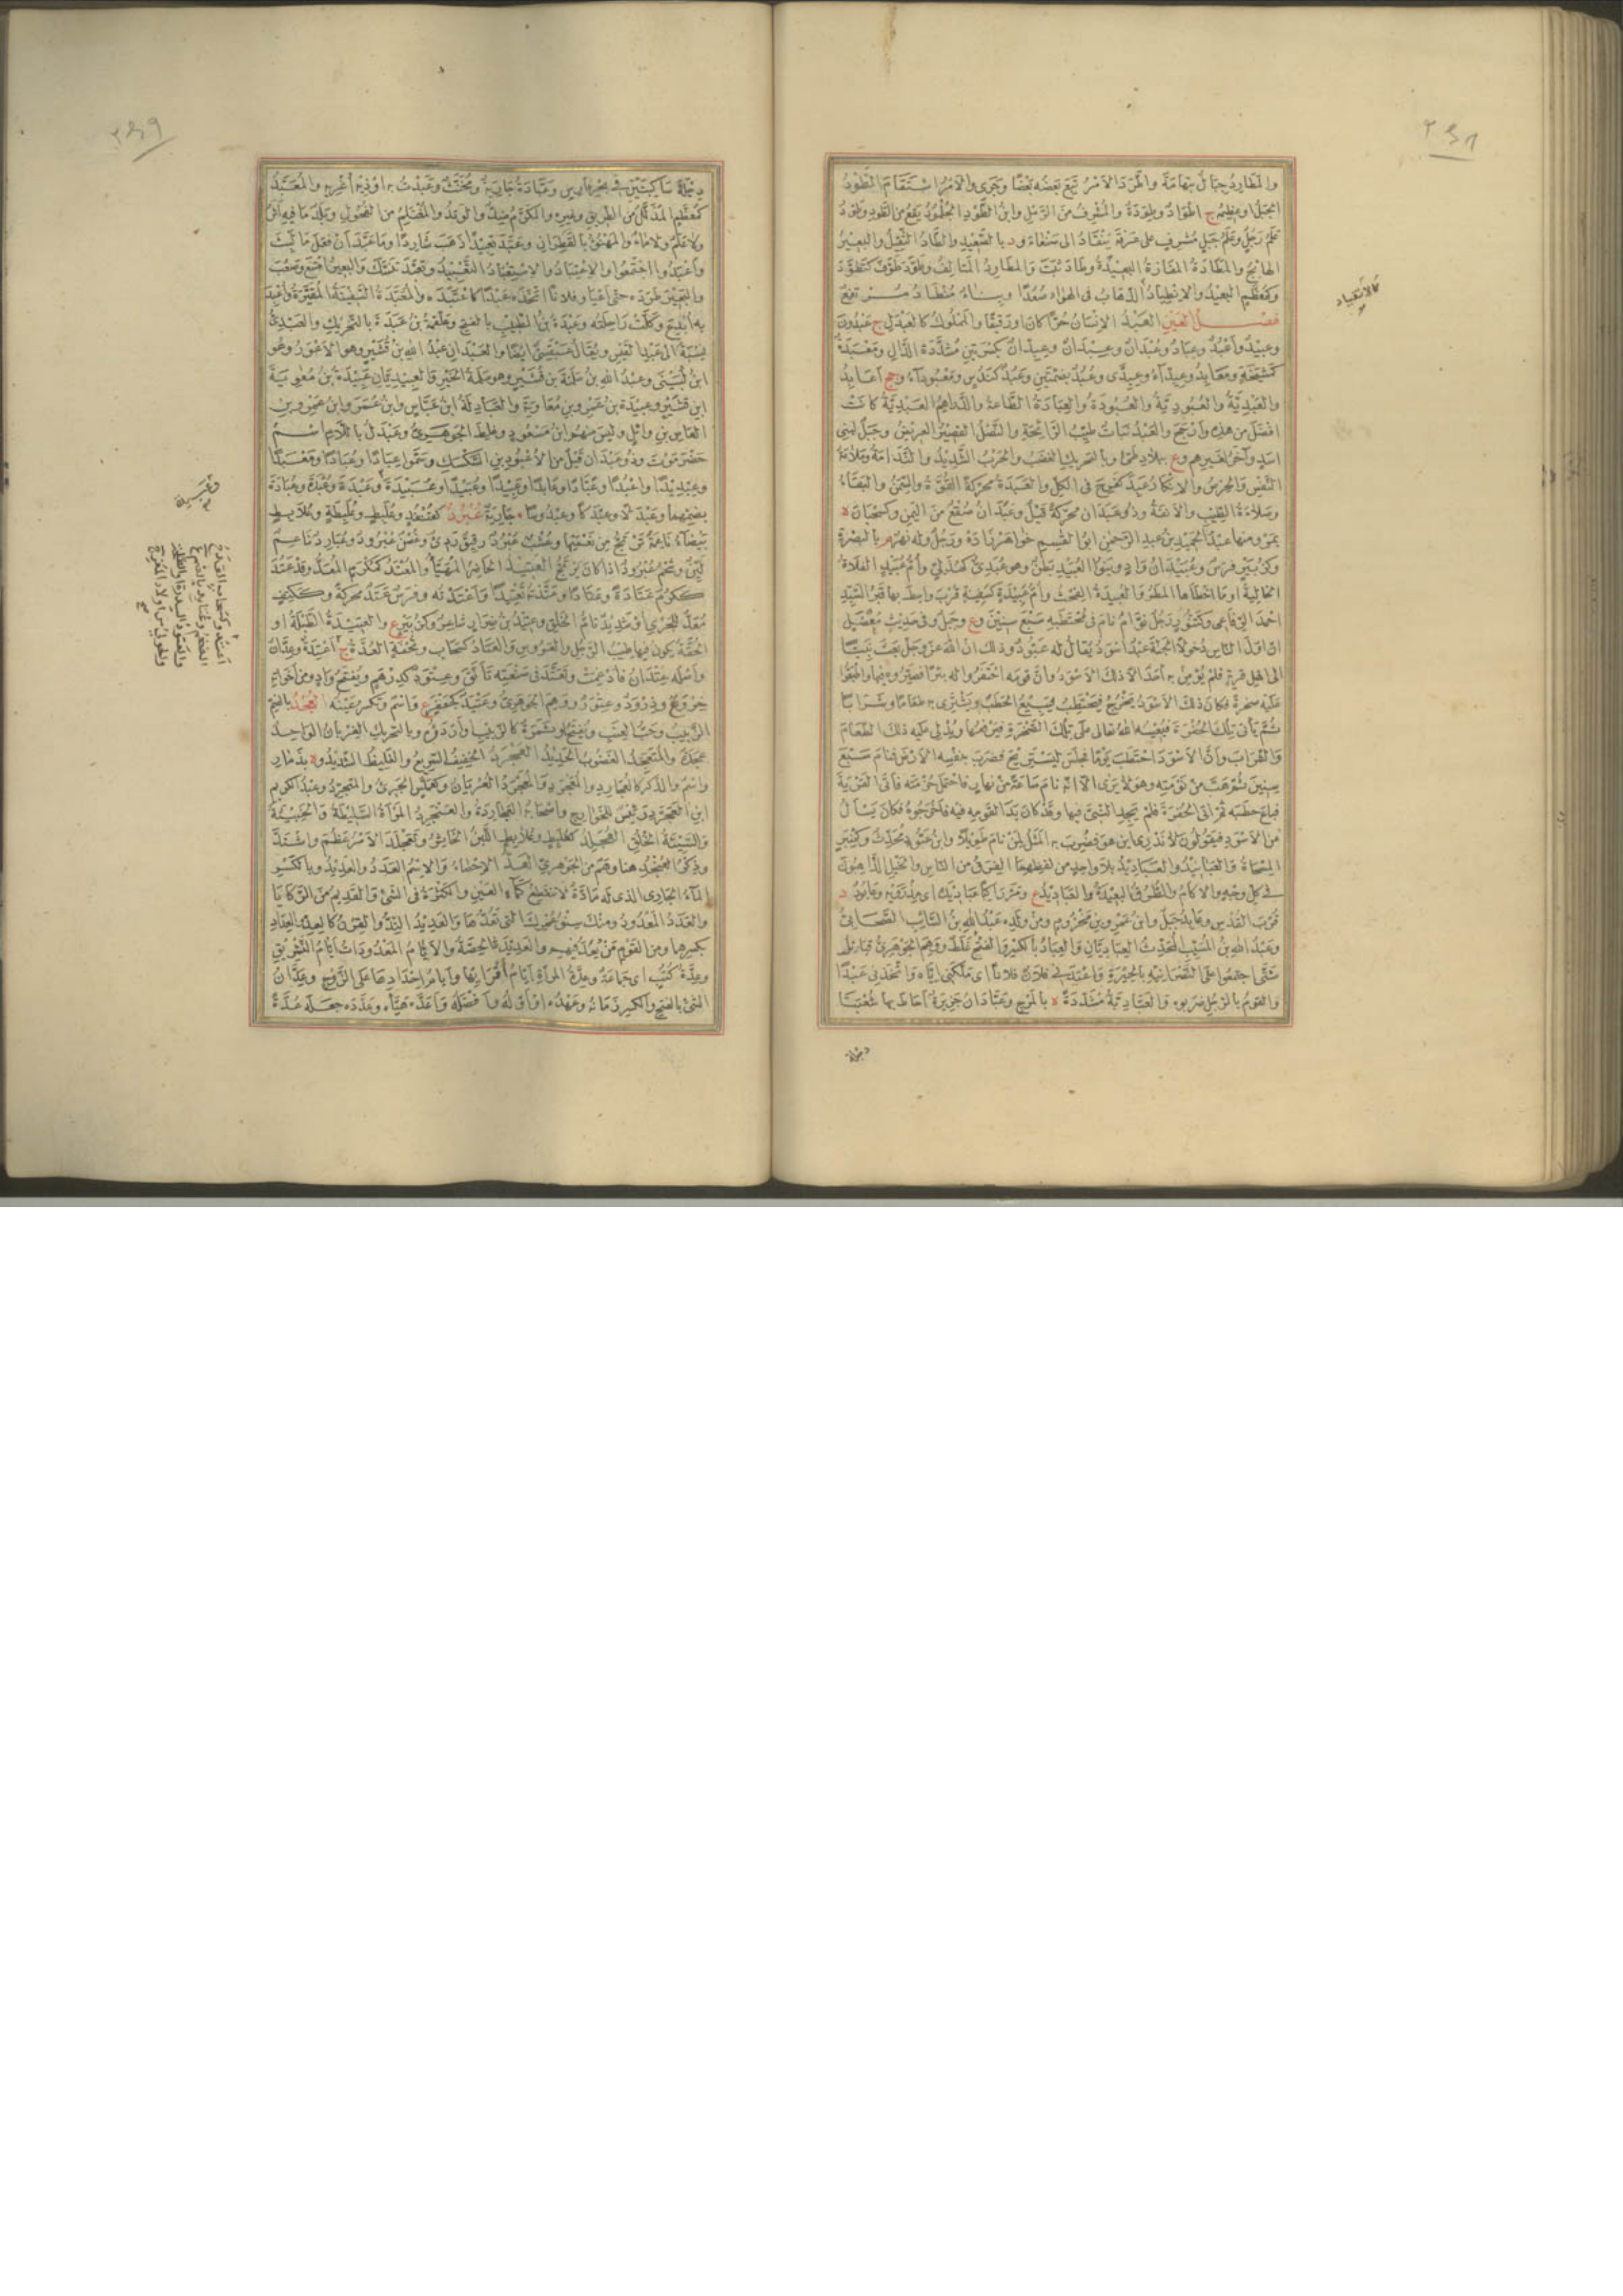 والمطارد جبال بتهامة واطرد الامر تبع بعضه بعضا وجرى والامر استقام الطود
الجبل او عظيمه ج اطواد وطودة والمشرف من الرمل وابن الطود الجلمود يقع من الطود وطود
علم رجل وعلم جبل مشرف على عرفة ينقاد الى صنعاء ود بالصعيد والطاد الثقيل والبعير
الهائج والمطادة المفازة البعيدة وطاد ثبت والمطاود المتالف وطود طوف كتطود
وكمعظم البعيد والانطياد الذهاب فى الهواء صعدا وبناء منطاد مرتفع
كالانقياد
فصل العين العبد الانسان حرا كان او رقيقا والمملوك كالعبدل ج عبدون
وعبيد واعبد وعباد وعبدان وعبدان وعبدان بكسرتين مشددة الدال ومعبدة
كمشيخة ومعابد وعبداء وعبدى وعبد بضمتين وعبد كندس ومعبوداء وجج اعابد
والعبدية والعبودية والعبودة والعبادة الطاعة والدراهم العبدية كانت
افضل من هذه وارجح والعبد نبات طيب الرائحة والنصل القصير العريض وجبل لبنى
اسد وآخر لغيرهم وع ببلاد طيئ وبالتحريك الغضب والجرب الشديد والندامة وملامة
النفس والحرص والانكار عبد كفرح فى الكل والعبدة محركة القوة والسمن والبقاء
وصلاءة الطيب والانفة وذو عبدان محركة قيل وعبدان صقع من اليمن وكسحبان ة
بمرو منها عبد الحميد بن عبد الرحمن ابو القسم خواهرزاده ورجل وله نهر م بالبصرة
وكزبير فرس وعبيدان واد وبنو العبيد بطن وهو عبدى كهذلى وام عبيد الفلاة
الخالية او ما اخطاها المطر والعبيدة الفحث وام عبيدة كسفينة قرب واسط بها قبر السيد
احمد الرفاعى وكتنور رجل نوام نام فى محتطبه سبع سنين وع وجبل وفى حديث معضل
ان اول الناس دخولا الجنة عبد اسود يقال له عبود وذلك ان الله عز وجل بعث نبيا
الى اهل قرية فلم يؤمن به احد الا ذلك الاسود وان قومه احتفروا له بئرا فصيروه فيها واطبقوا
عليه صخرة فكان ذلك الاسود يخرج فيحتطب فيبيع الحطب ويشترى به طعاما وشرابا
ثم يأتى تلك الحفرة فيعينه الله تعالى على تلك الصخرة فيرفعها ويدلى عليه ذلك الطعام
والشراب وان الاسود احتطب يوما فجلس ليستريح فضرب بنفسه الارض فنام سبع
سنين ثم هب من نومته وهو لا يرى الا انه نام ساعة من نهار فاحتمل حزمته فاتى القرية
فباع حطبه ثم اتى الحفرة فلم يجد النبى فيها وقد كان بدا لقومه فيه فاخرجوه فكان يسال
عن الاسود فيقولون لا ندرى اين هو فضرب به المثل لمن نام طويلا وابن عبود محدث وكمنبر
المسحاة والعبابيد والعباديد بلا واحد من لفظهما الفرق من الناس والخيل الذاهبون
فى كل وجه والآكام والطرق البعيدة والعباديد ع ومر راكبا عبابيده اى مذرويه وعابود د
قرب القدس وعابد جبل وابن عمر بن مخزوم ومن ولده عبد الله بن السائب الصحابى
وعبد الله بن المسيب المحدث العابديان والعباد بالكسر والفتح غلط ووهم الجوهرى قبائل
شتى اجتمعوا على النصرانية بالحيرة واعبدنى فلان فلانا اى ملكنى اياه واتخذنى عبدا
والقوم بالرجل ضربوه والعبادية مشددة ة بالمرج وعبادان جزيرة احاط بها شعبتا
دجلة
دجلة ساكبتين فى بحر فارس وعبادة جارية ومخنث وعبدت به اوذيه اغرى به والمعبد
كمعظم المذلل من الطريق وغيره والمكرم ضد والوتد والمغتلم من الفحول وبلد ما فيه اثر
ولا علم ولا ماء والمهنوء بالقطران وعبد تعبيدا ذهب شاردا وما عبد ان فعل ما لبث
واعبدوا اجتمعوا والاعتباد والاستعباد التعبيد وتعبد تنسك والبعير امتنع وصعب
والبعير طرده حتى اعيا وفلانا اتخذه عبدا كاعتبده والمعبدة السفينة المقيرة واعبد
به ابدع وكلت راحلته وعبدة بن الطبيب بالفتح وعلقمة بن عبدة بالتحريك والعبدى
نسبة الى عبد القيس ويقال عبقسى ايضا والعبدان عبد الله بن قشير وهو الاعور وهو
ابن لبينى وعبد الله بن سلمة بن قشير وهو سلمة الخير والعبيدتان عبيدة بن معوية
ابن قشير وعبيدة بن عمرو بن معاوية والعبادلة ابن عباس وابن عمر وابن عمرو بن
العاص بن وائل وليس منهم ابن مسعود وغلط الجوهرى وعبدل باللام اسم
حضرموت وذو عبدان قيل من الاعبود بن السكسك وسموا عبادا وعبادا ومعبدا
وعبديدا واعبدا وعبادا وعابدا وعبيدا وعبيدا وعبيدة وعبيدة وعبدة وعبدة وعبادة
بضمهما وعبدلا وعبدكا وعبدوسا جارية عبرد كقنفذ وعلبط وعلبطة وعلابط
بيضاء ناعمة ترتج من نعمتها وعشب عبرد رقيق ردئ وغصن عبرود وعبارد ناعم
لين وشحم عبرود اذا كان يرتج العتيد الحاضر المهيا والمعتد كمكرم المعد وقد عتد
ككرم عتادة وعتادا وعتدته تعتيدا واعتدته وفرس عتد محركة وككتف
معد للجرى او شديد تام الخلق وعتيد بن ضرار شاعر وكزبير ع والعتيدة الطبلة او
الحقة يكون فيها طيب الرجل والعروس والعتاد كسحاب وبحر العدة ج اعتدة وعدان
واصله عتدان فادغمت وتعتد فى صنعته تانق وعتود كدرهم ويفتح واد ومن اخواته
خروع وذرود وعتور ووهم الجوهرى وعتيد كجعفر ع واسم وتكسر عينه العجد بالضم
الزبيب وحب العنب ويفتح او ثمرة كالزبيب او اردؤه وبالتحريك الغربان الواحد
عجدة والمتعجد الغضوب الحديد العجرد الخفيف السريع والغليظ الشديد وة بذمار
واسم والذكر كالعجارد والمعجرد والعجرد العريان وكعملس الجرئ والمتجرد وعبد الكريم
ابن العجرد رئيس للخوارج واصحابه العجاردة والعنجرد المراة السليطة او الخبيثة
والسيئة الخلق العجلد كعلبط وعلابط اللبن الخاثر وتعجلد الامر عظم واشتد
وذكر العنجد هنا وهم من الجوهرى العد الاحصاء والاسم العدد والعديد وبالكسر
الماء الجارى الذى له مادة لا تنقطع كماء العين والكثرة فى الشئ والقديم من الركايا
والعدد المعدود ومنك سنو عمرك التى تعدها والعديد الند والقرن كالعد والعداد
بكسرهما ومن القوم من يعد فيهم والعديدة الحصة والايام المعدودات ايام التشريق
وعدة كتب اى جماعة وعدة المرأة ايام اقرائها وايام احدادها على الزوج وعدان
الشئ بالفتح والكسر زمانه وعهده او اوله وافضله واعده هيأه وعدده جعله عدة